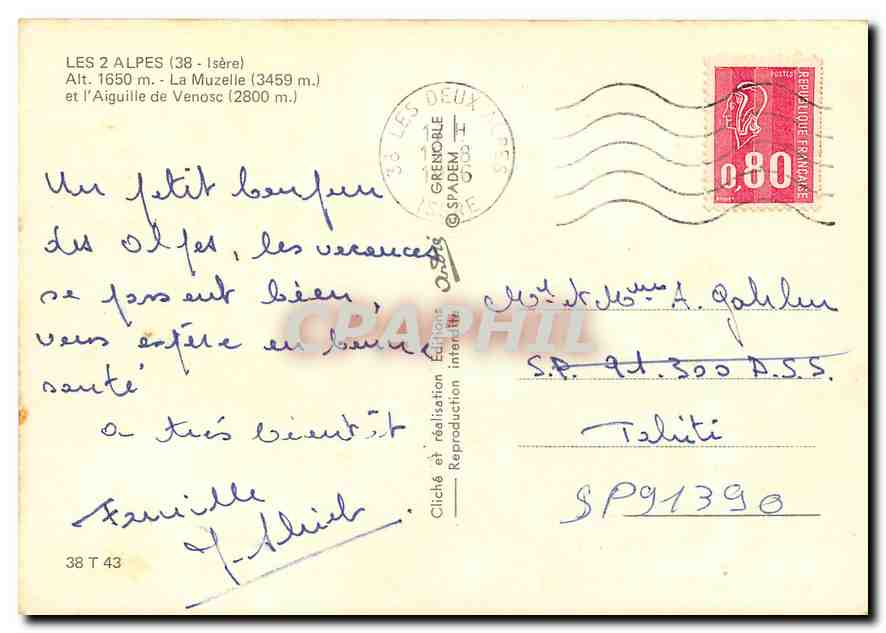 LES 2 ALPES (38 - Isère)
Alt. 1650 m. - La Muzelle (3459 m.)
et l'Aiguille de Venosc (2800 m.)
38 LES DEUX ALPES
REPUBLIQUE FRANÇAISE
POSTES
0,80
Un petit bonjour
des Alpes, les vacances
se passent bien,
vous espère en bonne
santé
a très bientôt
Famille
38 T 43
GRENOBLE
© SPADEM
André
Cliché et réalisation Editions
Reproduction interdite
Mr et Mme A.
S.P. 91.300 A.S.S.
Tahiti
SP91390
CPAPHIL